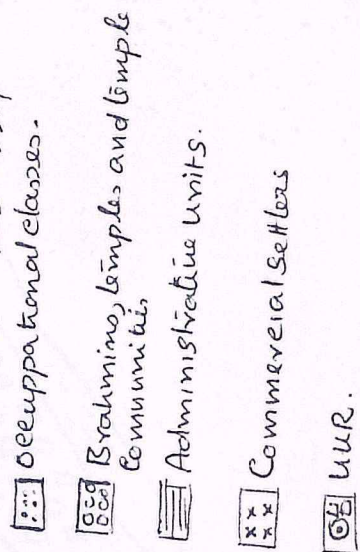 occuppational classes.
Brahmins, temples and temple
Communities
Administrative units.
Commercial Settlers
UUR.